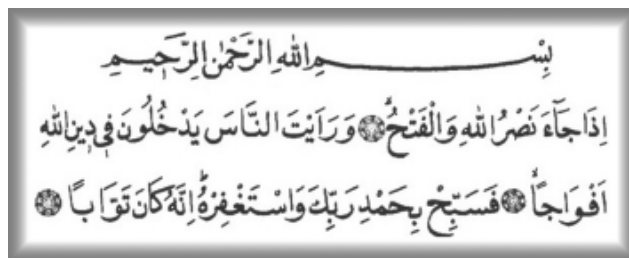 بِسْمِ اللهِ الرَّحْمٰنِ الرَّحِيمِ
اِذَا جَٓاءَ نَصْرُ اللهِ وَالْفَتْحُۙ ۞ وَرَاَيْتَ النَّاسَ يَدْخُلُونَ فِي دِينِ اللهِ
اَفْوَاجًاۙ ۞ فَسَبِّحْ بِحَمْدِ رَبِّكَ وَاسْتَغْفِرْهُۜ اِنَّهُ كَانَ تَوَّابًا ۞